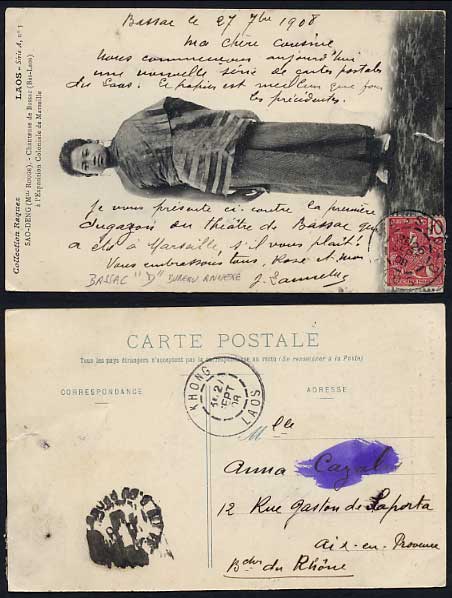 Collection Raquez
LAOS - Série A, n° 1
SAO-DENG (Mlle ROUGE). - Chanteuse de Bassac (Bas-Laos)
à l'Exposition Coloniale de Marseille
Bassac le 27 7bre 1908
Ma chère cousine
Nous commençons aujourd'hui
une nouvelle série de cartes postales
du Laos. Ce papier est meilleur que pour
les précédentes.
Je vous présente ci-contre la première
dugazon du théâtre de Bassac qui
a été à Marseille, s'il vous plaît!
Vous embrassons tous, Rose et moi
BASSAC "D" BUREAU ANNEXE
CARTE POSTALE
Tous les pays étrangers n'acceptent pas la correspondance au recto (Se renseigner à la Poste)
CORRESPONDANCE
ADRESSE
KHONG
27
SEPT
08
LAOS
Mlle
Anna Cazal
12 Rue Gaston de Saporta
Aix-en-Provence
Bches du Rhône